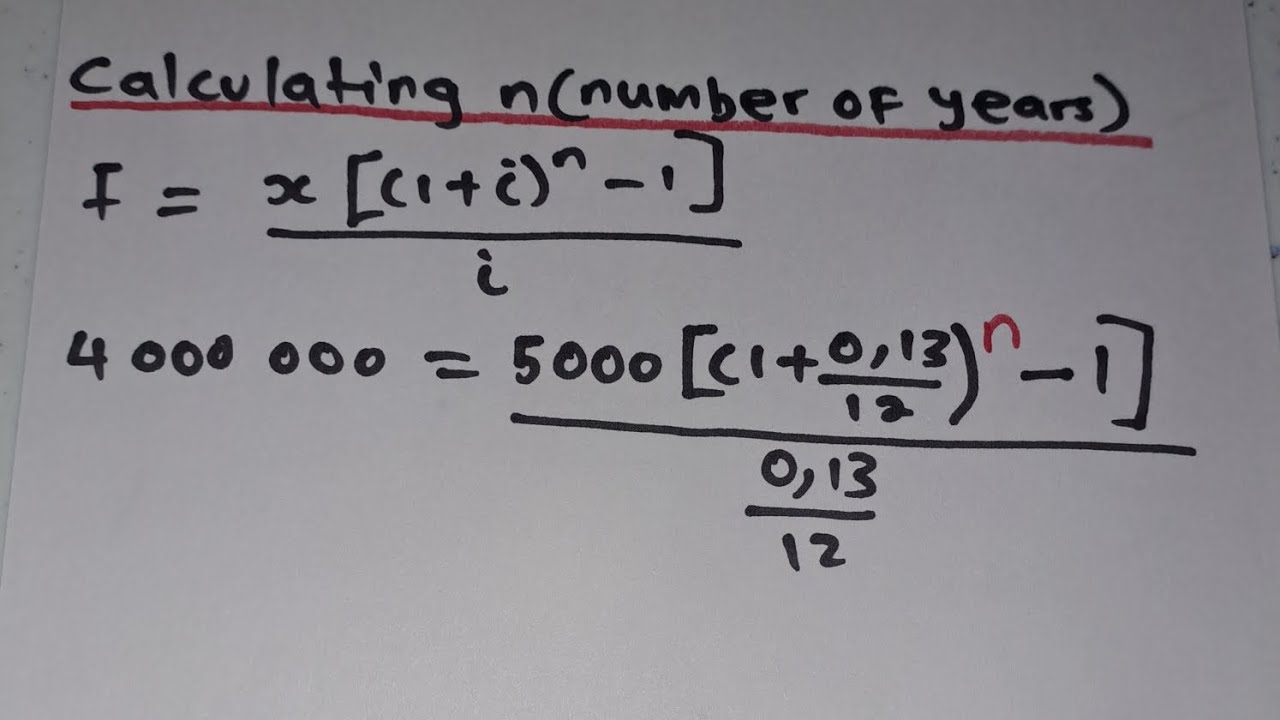 Calculating n(number of years)
F = x[(1+i)^n - 1]
i
4 000 000 = 5000[(1+0,13/12)^n - 1]
0,13
12